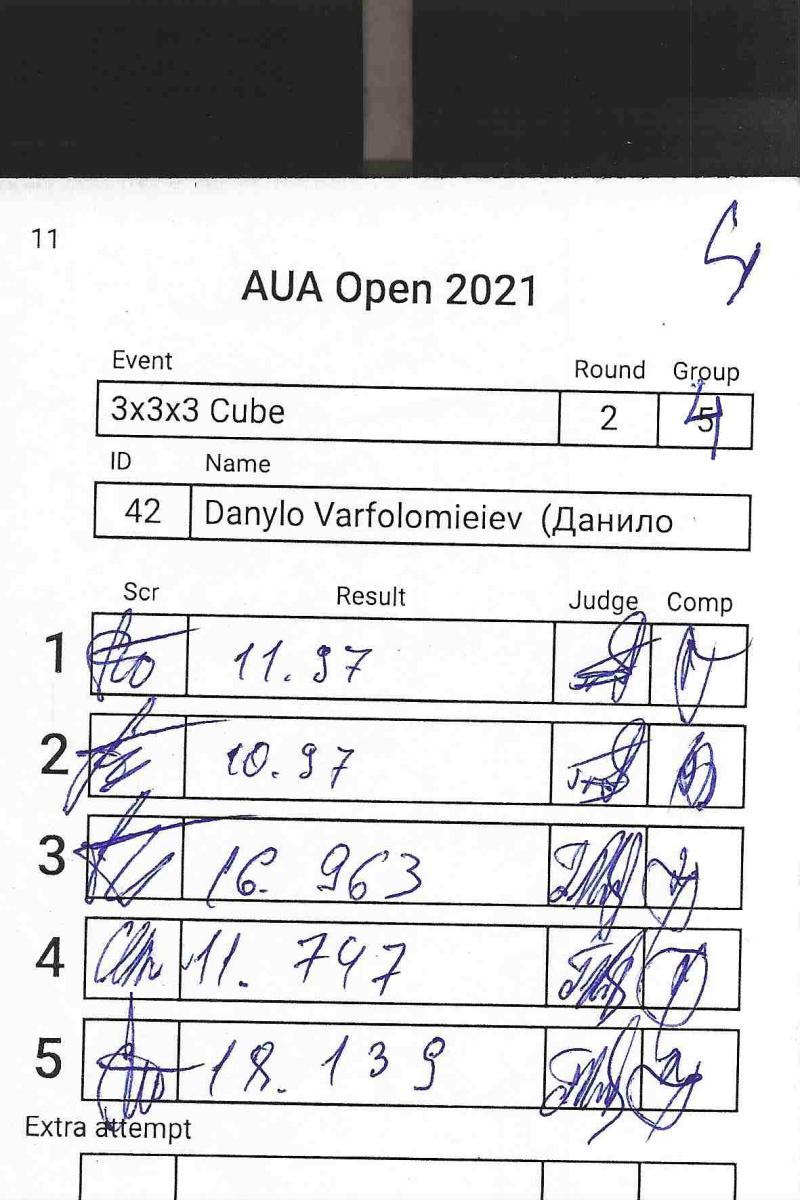 11
4
AUA Open 2021
Event Round Group
3x3x3 Cube 2 5 4
ID Name
42 Danylo Varfolomieiev (Данило
Scr Result Judge Comp
1 11.97
2 10.97
3 16.963
4 11.747
5 18.139
Extra attempt